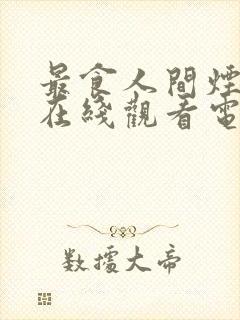 最食人間煙
在綫觀看電
数擋大帝